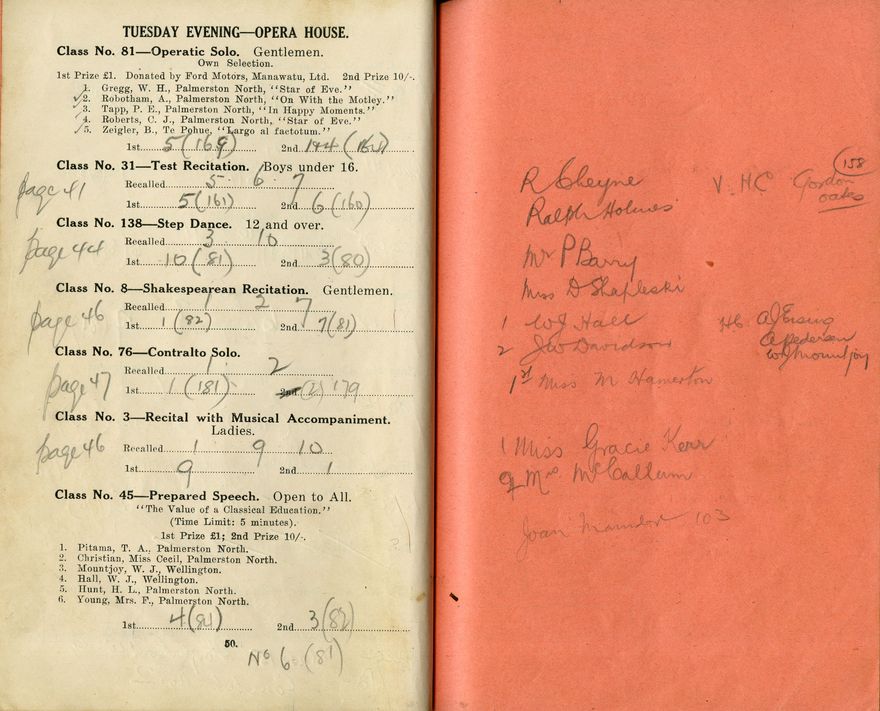 TUESDAY EVENING—OPERA HOUSE.
Class No. 81—Operatic Solo. Gentlemen.
Own Selection.
1st Prize £1. Donated by Ford Motors, Manawatu, Ltd. 2nd Prize 10/-.
1. Gregg, W. H., Palmerston North, "Star of Eve."
2. Robotham, A., Palmerston North, "On With the Motley."
3. Tapp, P. E., Palmerston North, "In Happy Moments."
4. Roberts, C. J., Palmerston North, "Star of Eve."
5. Zeigler, B., Te Pohue, "Largo al factotum."
1st 5 (169) 2nd
Class No. 31—Test Recitation. Boys under 16.
page 41
Recalled 5 6 7
1st 5 (161) 2nd 6 (160)
Class No. 138—Step Dance. 12 and over.
page 44
Recalled 3 10
1st 10 (81) 2nd 3 (80)
Class No. 8—Shakespearean Recitation. Gentlemen.
page 46
Recalled 1 2 7
1st 1 (82) 2nd 7 (81)
Class No. 76—Contralto Solo.
page 47
Recalled 1 2
1st 1 (181) 2nd (2) 179
Class No. 3—Recital with Musical Accompaniment.
Ladies.
page 46
Recalled 1 9 10
1st 9 2nd 1
Class No. 45—Prepared Speech. Open to All.
"The Value of a Classical Education."
(Time Limit: 5 minutes).
1st Prize £1; 2nd Prize 10/-.
1. Pitama, T. A., Palmerston North.
2. Christian, Miss Cecil, Palmerston North.
3. Mountjoy, W. J., Wellington.
4. Hall, W. J., Wellington.
5. Hunt, H. L., Palmerston North.
6. Young, Mrs. F., Palmerston North.
1st 4 (81) 2nd 3 (82)
50.
No 6 (81)
158
R Cheyne V. HC Gordon
oates
Ralph Holmes
Mr P Barry
Miss D Shapleski
1 W J Hall Hc A J
2 J W Davidson A Pedersen
W J Mountjoy
1st Miss M Hamerton
1 Miss Gracie Kerr
9 Mrs McCallum
Joan 103